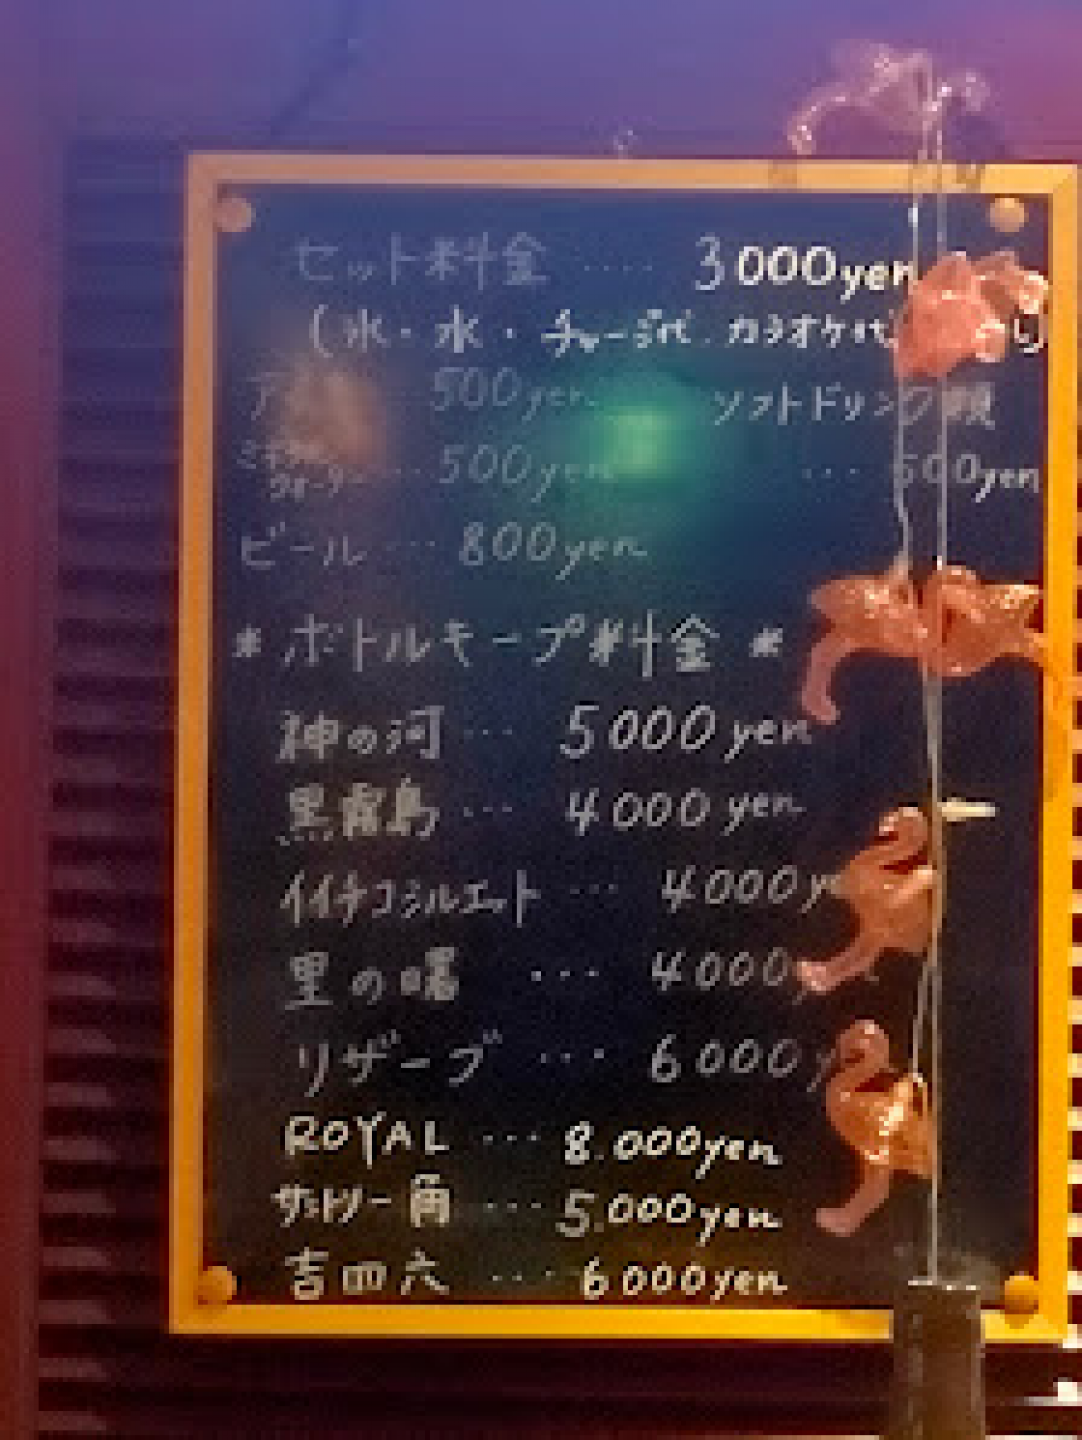 セット料金 ···· 3000yen
(氷・水・チャージ代.カラオケ代
500yen ソフトドリンク類
ミネラルウォーター ··· 500yen ··· 500yen
ビール ··· 800yen
* ボトルキープ料金 *
神の河 ··· 5000yen
黒霧島 ··· 4000yen
イイチコシルエット ··· 4000y
里の曙 ··· 4000
リザーブ ··· 6000y
ROYAL ··· 8.000yen
サントリー角 ··· 5.000yen
吉四六 ··· 6000yen